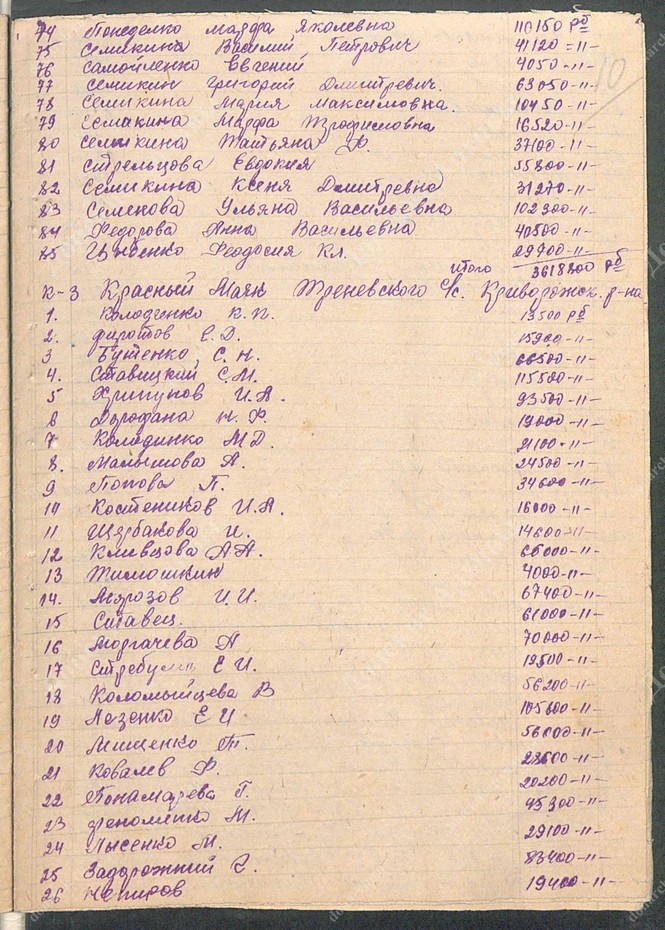 74 Понеделко Марфа Яковлевна 110150 рб
75 Семикина Василий Петрович 41120 -"-
76 Самойленко Евгений 4050 -"-
77 Семикин Григорий Дмитревич. 63050 -"-
78 Семикина Мария Максимовна. 10450 -"-
79 Семикина Марфа Трофисловна 16520 -"-
80 Семикина Татьяна Ф. 37100 -"-
81 Стрельцова Евдокия 55800 -"-
82 Семикина Ксеня Дмитревна 31270 -"-
83 Семекова Ульяна Васильевна 102300 -"-
84 Федорова Анна Васильевна 40500 -"-
85 Цыбенко Феодосия Кл. 29700 -"-
итого 3618800 рб
10
К-з Красный Маяк Треневского с/с. Криворожск. р-на
1. Колодченко К.П. 13500 рб
2. Е.Д. 15900 -"-
3 Бутенко С.Н. 66500 -"-
4. Ставицкий С.М. 115500 -"-
5 Хрипунов И.А. 93500 -"-
6 Дородана Н.Ф. 19000 -"-
7 Колодинко М.Д. 21100 -"-
8. Малышова А. 24500 -"-
9 Попова П. 34600 -"-
10 Костеников И.А. 16000 -"-
11 Щербакова И. 14600 -"-
12 Клевцова А.А. 65000 -"-
13 Тимошкин 4000 -"-
14. Морозов И.И. 67400 -"-
15 Ставец. 61000 -"-
16 Моргачева А 70000 -"-
17 Е И. 19500 -"-
18 Коломыйцева В 56200 -"-
19 Лазенко Е И 105600 -"-
20 Мишенко Т. 56000 -"-
21 Ковалев Ф. 28600 -"-
22 Понамарева Г. 20200 -"-
23 М. 45300 -"-
24 Лысенко М. 29100 -"-
25 Задорожний 83400 -"-
26 19400 -"-